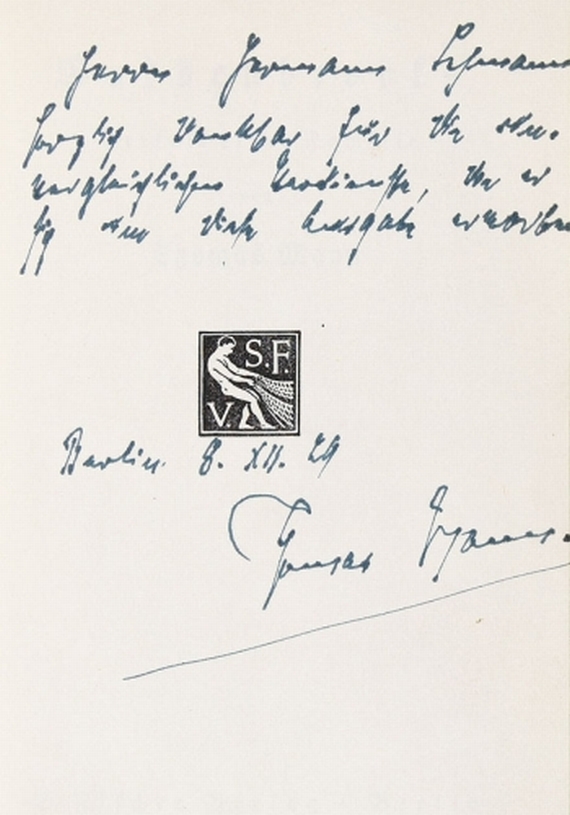 Herrn Hermann Lehmann
herzlich dankbar für die un-
vergleichlichen Verdienste, die er
sich um diese Ausgabe erworben
S.F.
V.
Berlin. 8. XII. 29
Thomas Mann.